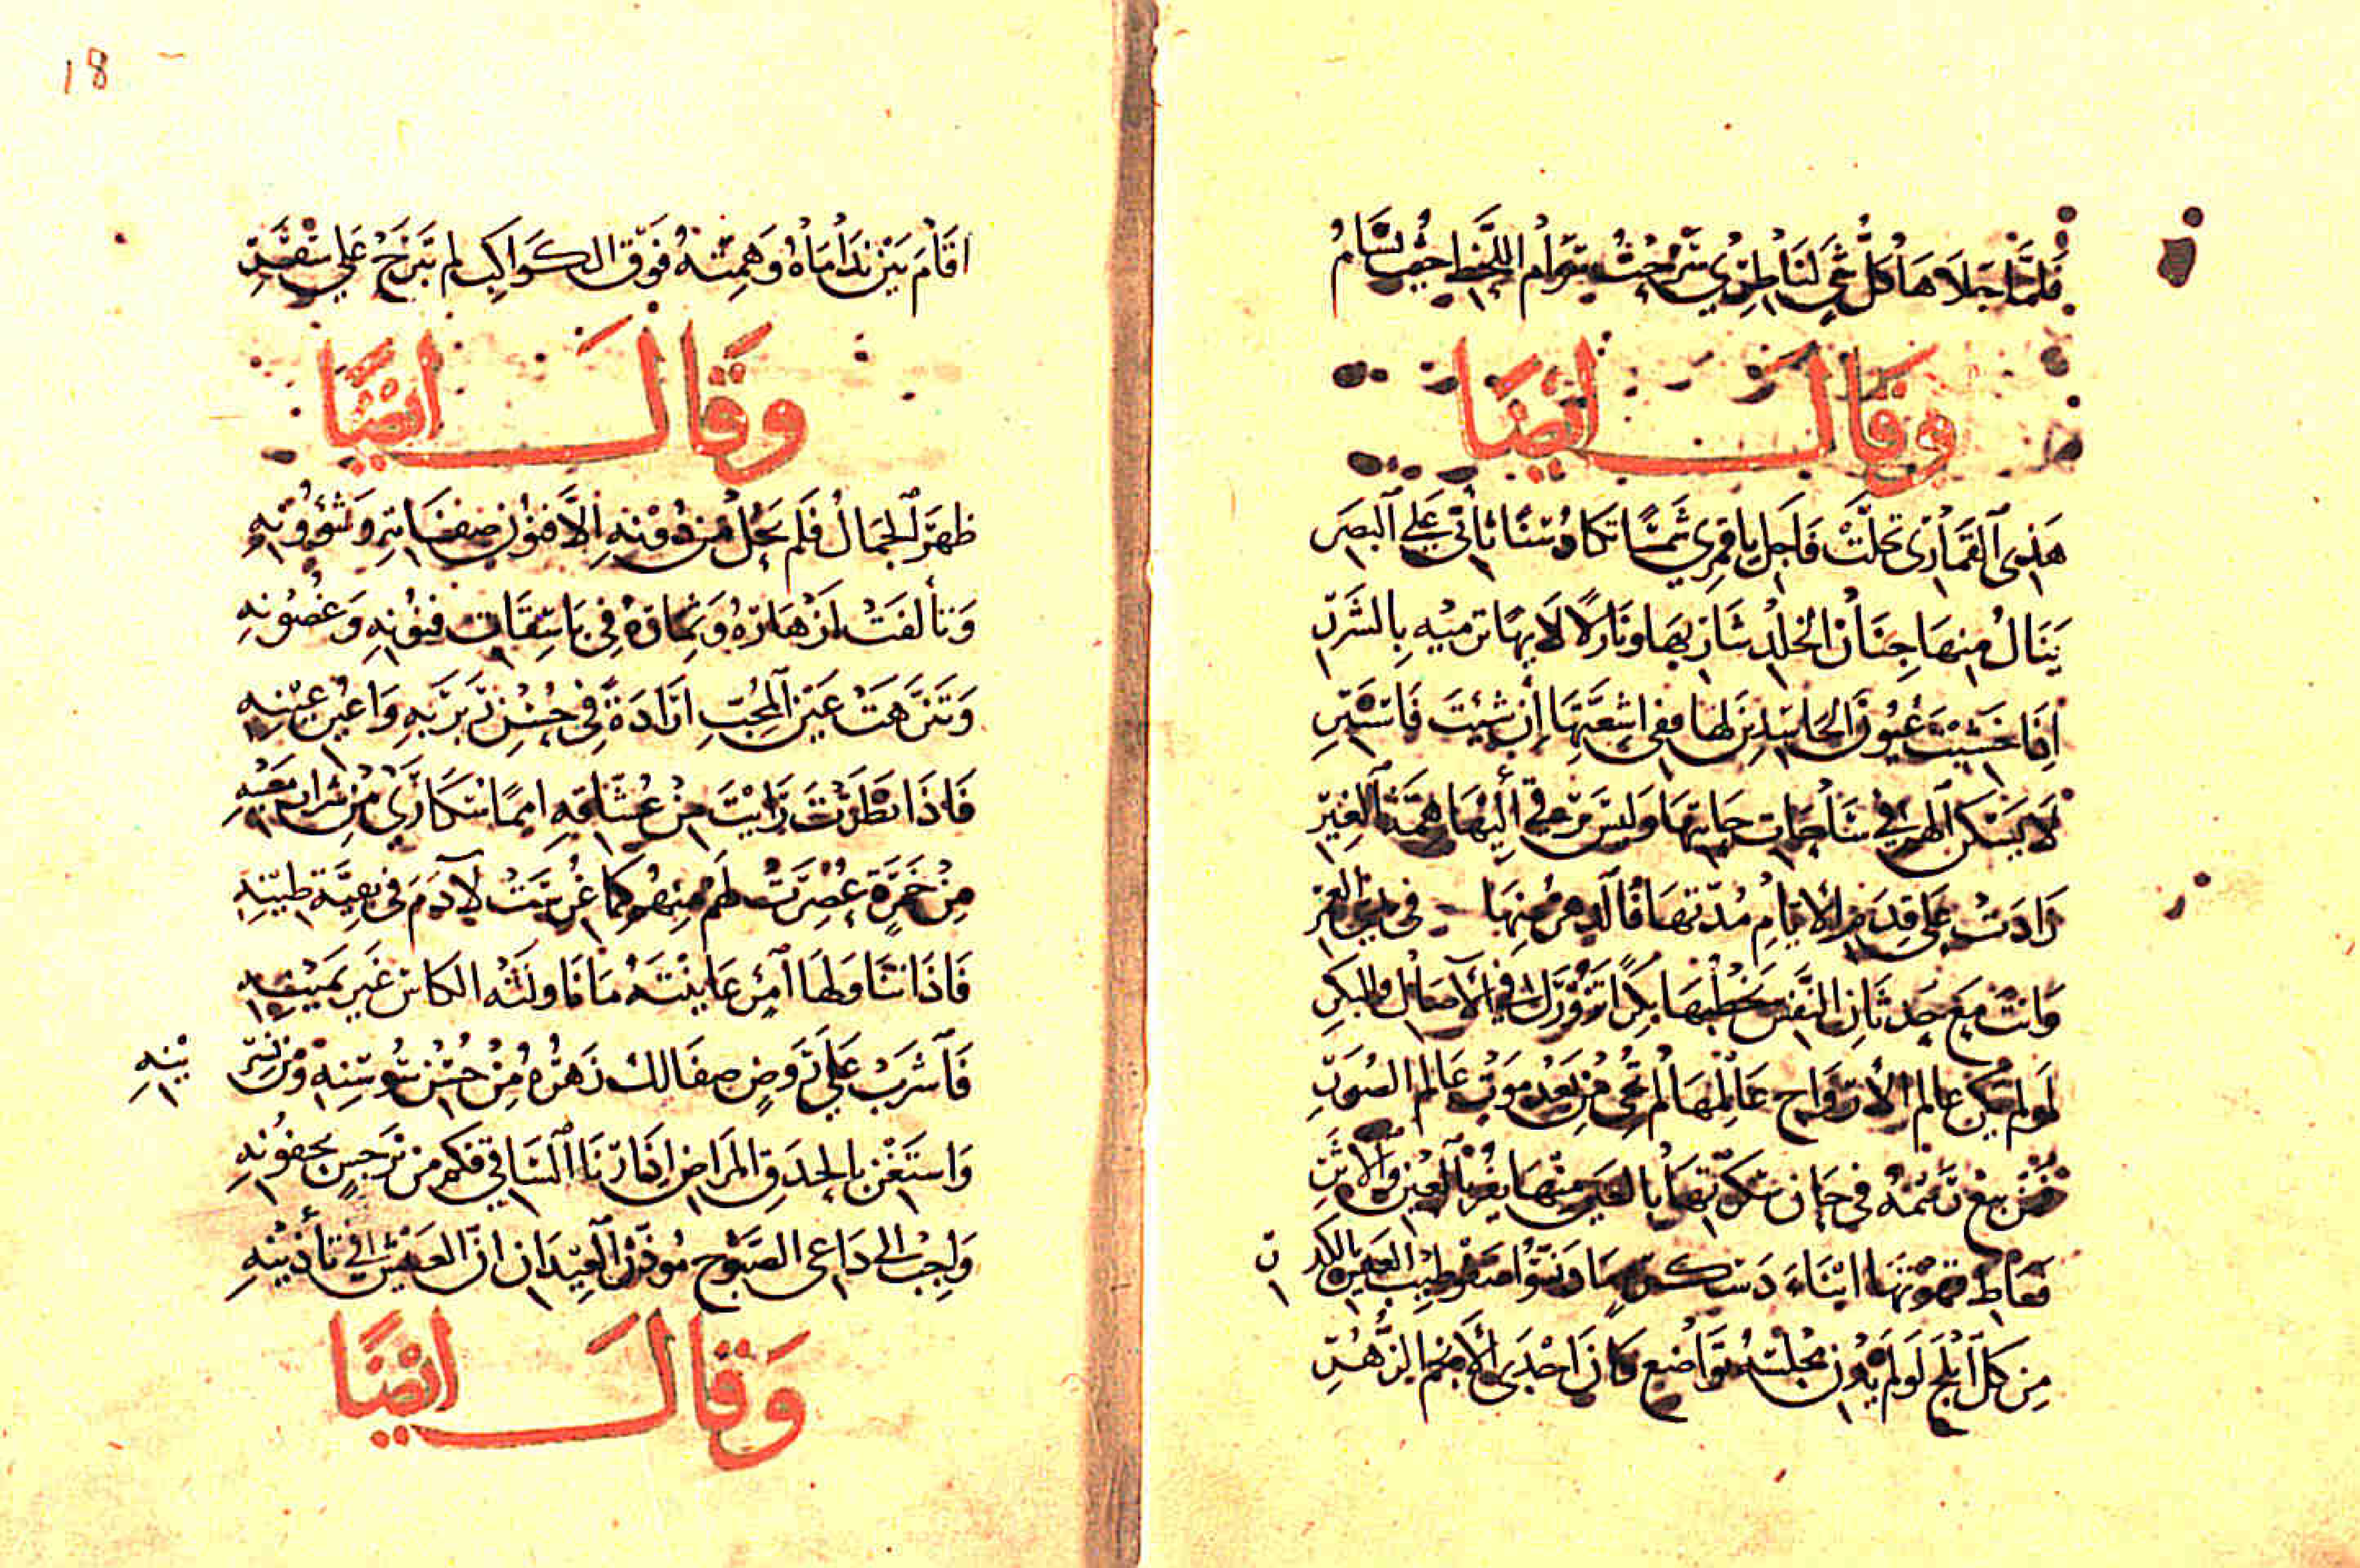 فَلَمَّا جَلَاهَا كُلُّ شَيٍ لنَاظِرِي سَرَحْتُ سَوَامُ اللَّحْظِ حَيْثُ تسَامُ
وَقَالَ ايْضًا
هَذِي القَمَارَى تَجَلَّتْ فَاجلُ يا قمِري شَمْسًا تكَادُ سَنًا تأتي عَلي البَصَرِ
يَنَالُ منهَا جِنَانَ الخلْدِ شَارِبها وَنَارُ لَالَائِهَا ترميْهِ بِالشَرَرِ
اِذَا خَشيْتَ عُيُونَ الحَاسِدِينَ لهَا ففي اشِعَّتِهَا إن شِئتَ فَاسْتَتِرِ
لَا يَسْكنُ الهمُّ في سَاحَاتِ حَانِهَا وَلَيسَ ترقي أليْهَا هِمَّةُ الغِيَرِ
زَادَتْ عَلي قِدَمِ الأيَّامِ مُدّتهَا فالدهرُ مِنهَا في
وَانتَ مَع حَدثَانِ النَّفسِ تخطُبها بِكرًا تزورُك في الآصَالِ وَالبُكَرِ
لَو لم يَكن عَالم الأرْوَاحِ عَالمهَا لم تحيِ مِن بَعْدِ مَوتٍ عَالم الصُوَرِ
في حَانِ سَكرتهَا بالعَينِ منهَا بَعْدَ العَينِ وَالأثَرِ
فعَاطِ قهوَتهَا اثنَاءَ دَسْكرةٍ
مِن كلّ ابْلجَ لَو لم يَدْنُ مجْلسُهُ تَوَاضعٍ كانَ احْدَي الأنجم الزُّهُرِ
18
اقَامَ بَيْن نَدَامَاهُ وَهِمّتهُ فَوَق الكَوَاكِبِ لم تبرَحْ عَلي سَفَرِ
وَقَالَ ايْضًا
ظهَرَ الجَمَالُ فلَم يَحُلْ مِن دُوْنِهِ اِلَّا فنُوْن صِفَاتِهِ وَشُؤُوْنِهِ
وَتَألفَتْ ازْهَارُهُ وَثِمَارُهُ في بَاسِقَاتِ فنُوْنِهِ وَغُصُوْنِهِ
وَتَنزَّهَتْ عَيْن المُحِبّ اِرَادَةً في حُسْنِ رَبْرَبِهِ وَاعْيُن عِيْنِهِ
فَاِذَا نَظَرْتَ رَايْتَ مِنْ عُشّاقِهِ اممًا سُكَارَي مِنْ شَرابِ مَعِيْنِهِ
مِنْ خَمرَةٍ عُصِرَتْ لَهُم مِنهُم كمَا غُرِسَتْ لآدَمَ في بقيَّةِ طِيْنِهِ
فَاذَا تنَاوَلهَا امرُؤٌ عَايَنْتَهُ مَا نَاوَلَتْه الكَاسَ غَير يَمِيْنِهِ
فَاشرَبْ عَلَي رَوضٍ صفَا لك زَهْرُهُ مِنْ حُسْنِ سُوسَنِهِ وَمن نِسْرِيْنِهِ
وَاسْتَغْنِ بِالحدَقِ المرَاضِ اِذَا رَنَا السَاقي فكَم مِن نَرجِسٍ بجفوْنِهِ
وَاجِبْ الي دَاعي الصَّبوْحِ مُوذّن العِيْدَانِ انّ العَيْشَ في تَأذِيْنِهِ
وَقَالَ ايْضًا